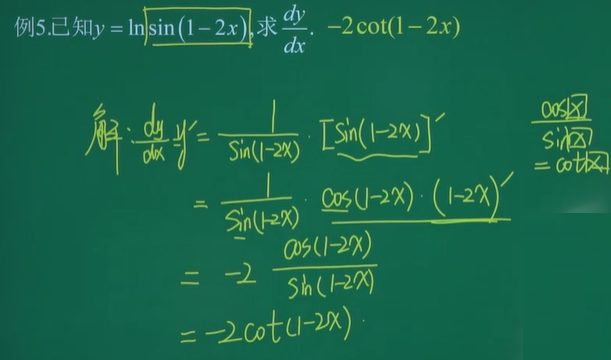 例5.已知y = ln sin(1−2x),求dy/dx. −2cot(1−2x)
解: dy/dx = y′ = 1/Sin(1-2x) · [Sin(1-2x)]′
= 1/Sin(1-2x) · cos(1-2x) · (1-2x)′
= -2 cos(1-2x)/Sin(1-2x)
= -2cot(1-2x).
cos☒/sin☒
= cot☒